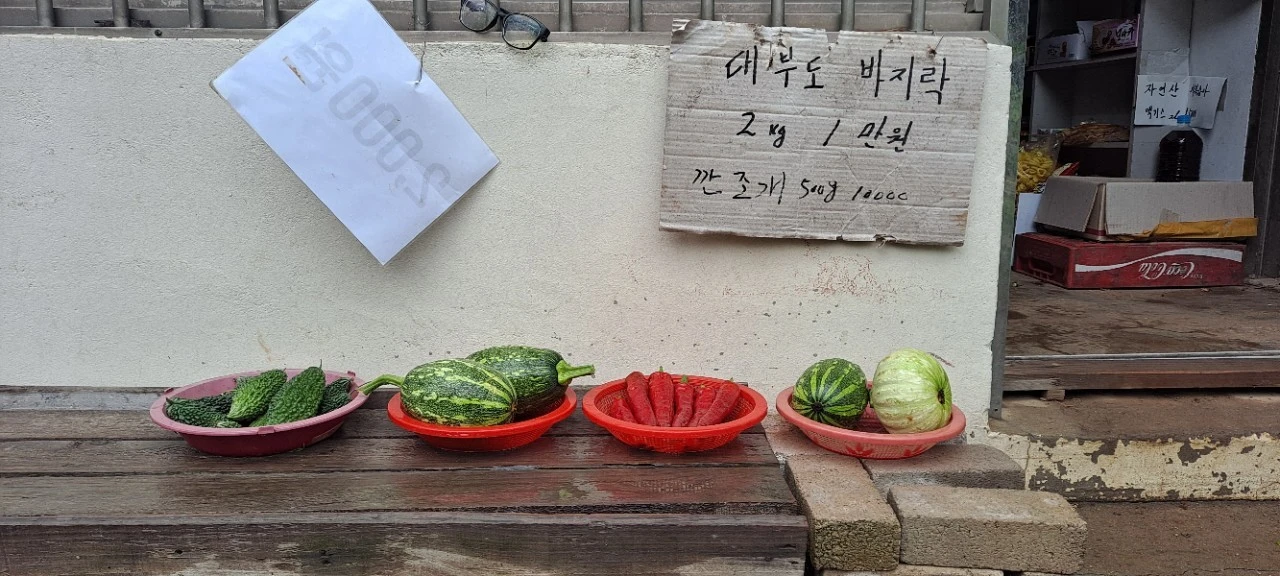 2,000원
대부도 바지락
2kg 1만원
깐조개 500g 10000
자연산
엑기스
Coca-Cola